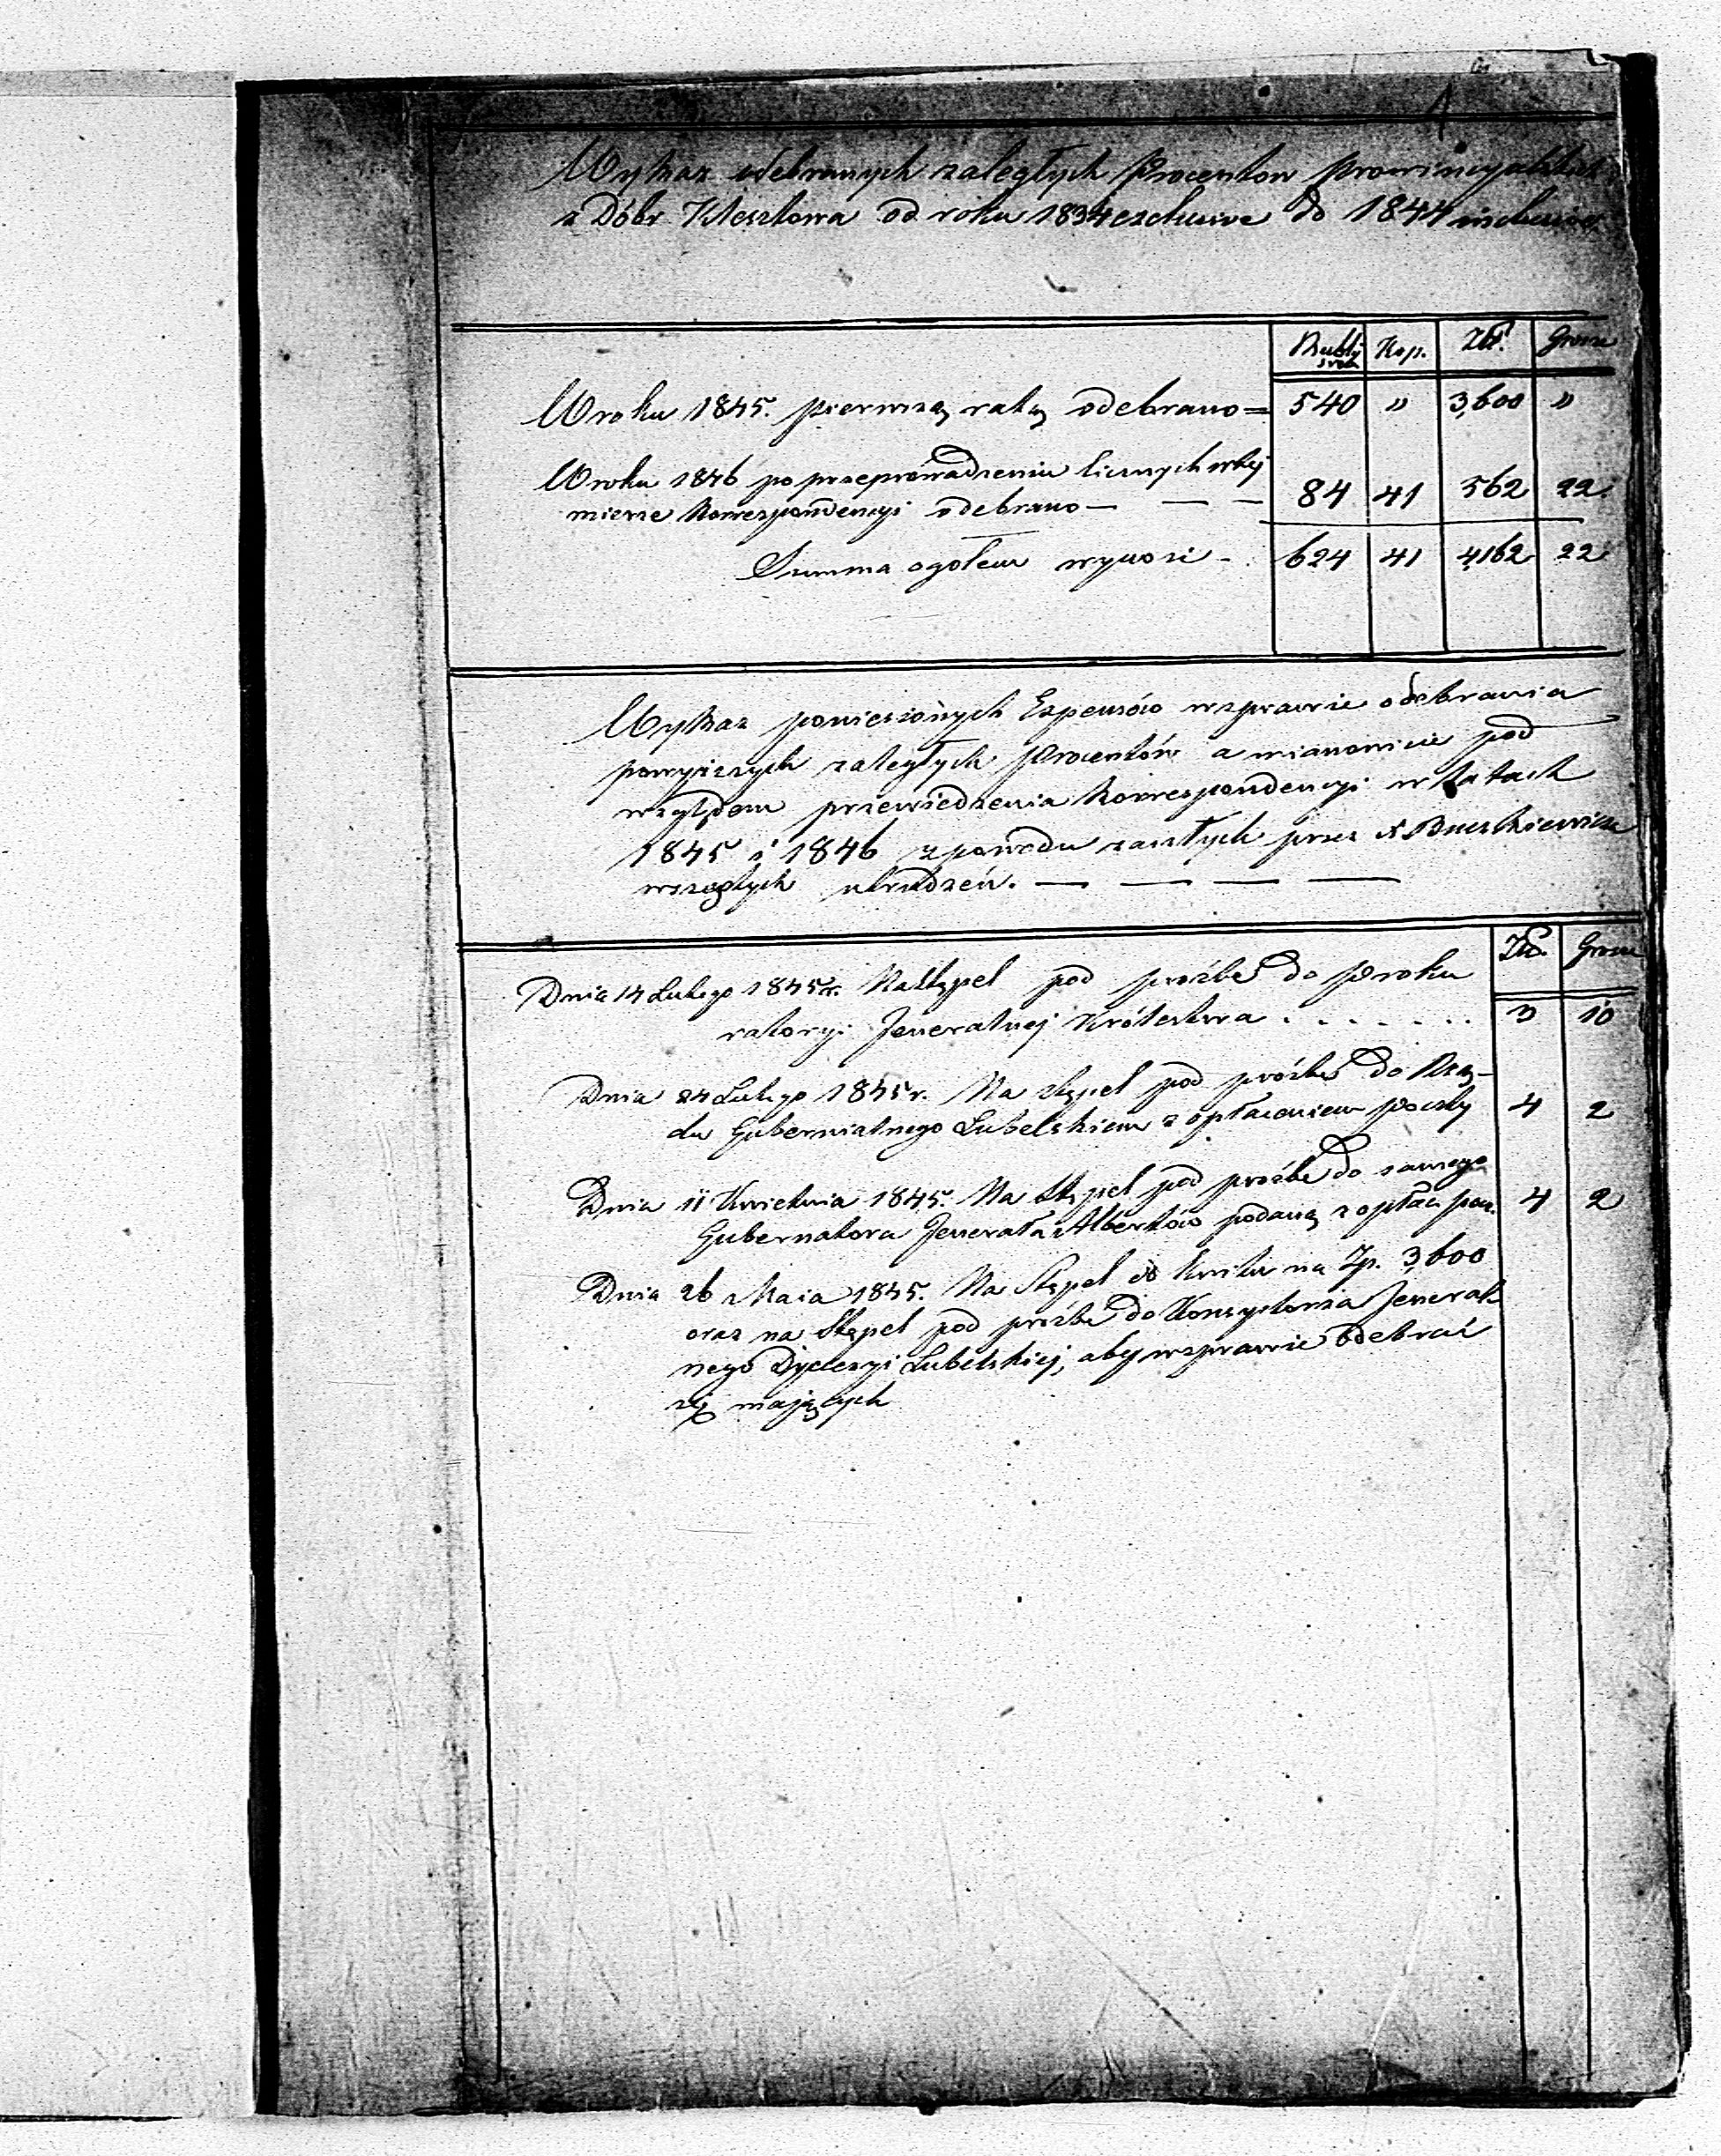 1
Wykaz odebranych zaległych Procentow prowincyalskich
z Dóbr Klesztowa od roku 1834 exclusive do 1844 inclusive
Rubly sreb. Kop. Złt. Grosze
W roku 1845. pierwszą ratą odebrano = 540 " 3,600 "
W roku 1846 po przeprowadzeniu licznych w tej
mierze Korrespondencyi odebrano — — — 84 41 562 22.
Summa ogołem wynosi - 624 41 4,162 22
Wykaz poniesionych Expensów w sprawie odebrania
powyższych zaległych Procentów a mianowicie pod
względem przewiedzenia Korrespondencyi w latach
1845 i 1846 z powodu zaszłych przez
utrudzeń. — — — —
Zło. Grosze
Dnia 14 Lutego 1845 r. Na Stępel pod prożbę do Proku
ratoryi Jeneralnej Królestwa . . . . . . . 3 10
Dnia 24 Lutego 1845 r. Na stępel pod prożbę do Rzą-
du Gubernialnego Lubelskiem z opłaceniem poczty 4 2
Dnia 11 Kwietnia 1845. Na Stępel pod prożbę do samego
Gubernatora Jenerała Albertów podaną z opłac pocz. 4 2
Dnia 26 Maia 1845. Na Stępel do Kwitu na Zp. 3,600
oraz na Stępel pod prożbę do Konsystorza Jeneral-
nego Dyecezyi Lubelskiej, aby w sprawie odebrać
się mających